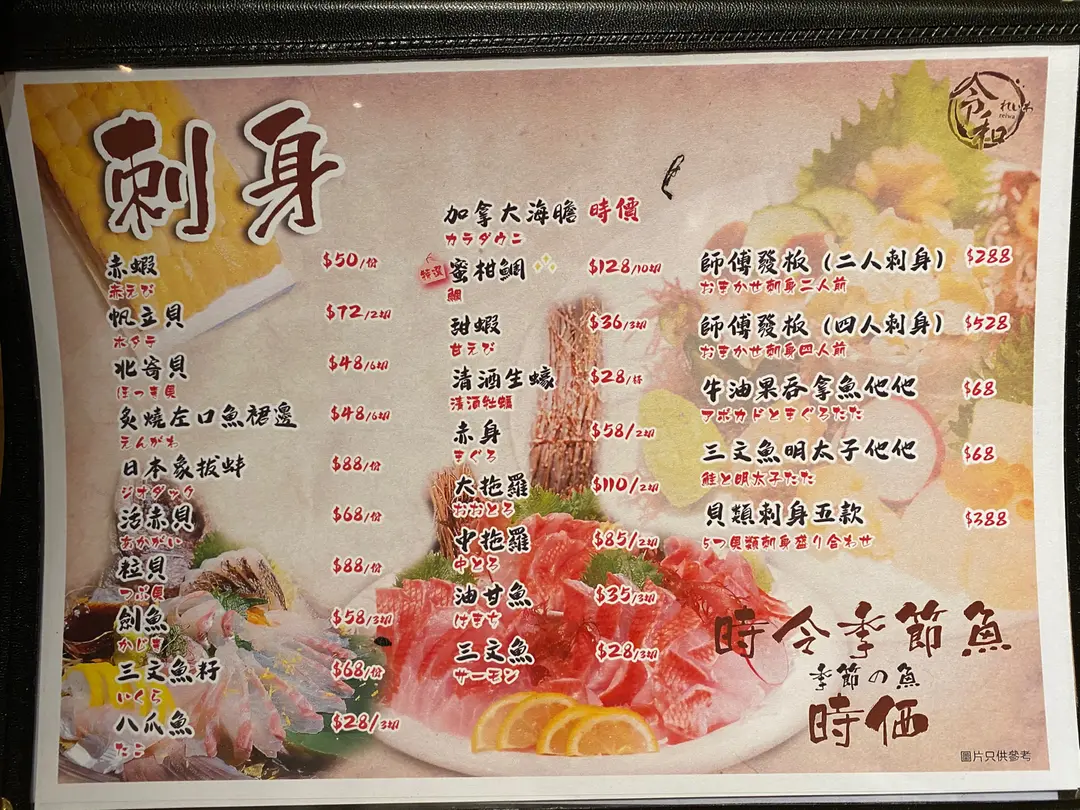 令和
れいわ
reiwa
刺身
赤蝦 $50/份
赤えび
帆立貝 $72/2切
ホタテ
北寄貝 $48/6切
ほっき貝
炙燒左口魚裙邊 $48/6切
えんがわ
日本象拔蚌 $88/份
ジオダック
活赤貝 $68/份
あかがい
粒貝 $88/份
つぶ貝
劍魚 $58/3切
かじき
三文魚籽 $68/份
いくら
八爪魚 $28/3切
たこ
加拿大海膽 時價
カラダウニ
特選 蜜柑鯛 $128/10切
鯛
甜蝦 $36/3切
甘えび
清酒生蠔 $28/隻
清酒牡蠣
赤身 $58/2切
まぐろ
大拖羅 $110/2切
おおとろ
中拖羅 $85/2切
中とろ
油甘魚 $35/3切
はまち
三文魚 $28/3切
サーモン
師傅發板(二人刺身) $288
おまかせ刺身二人前
師傅發板(四人刺身) $528
おまかせ刺身四人前
牛油果吞拿魚他他 $68
アボカドとまぐろたた
三文魚明太子他他 $68
鮭と明太子たた
貝類刺身五款 $388
5つ貝類刺身盛り合わせ
時令季節魚
季節の魚
時価
圖片只供參考